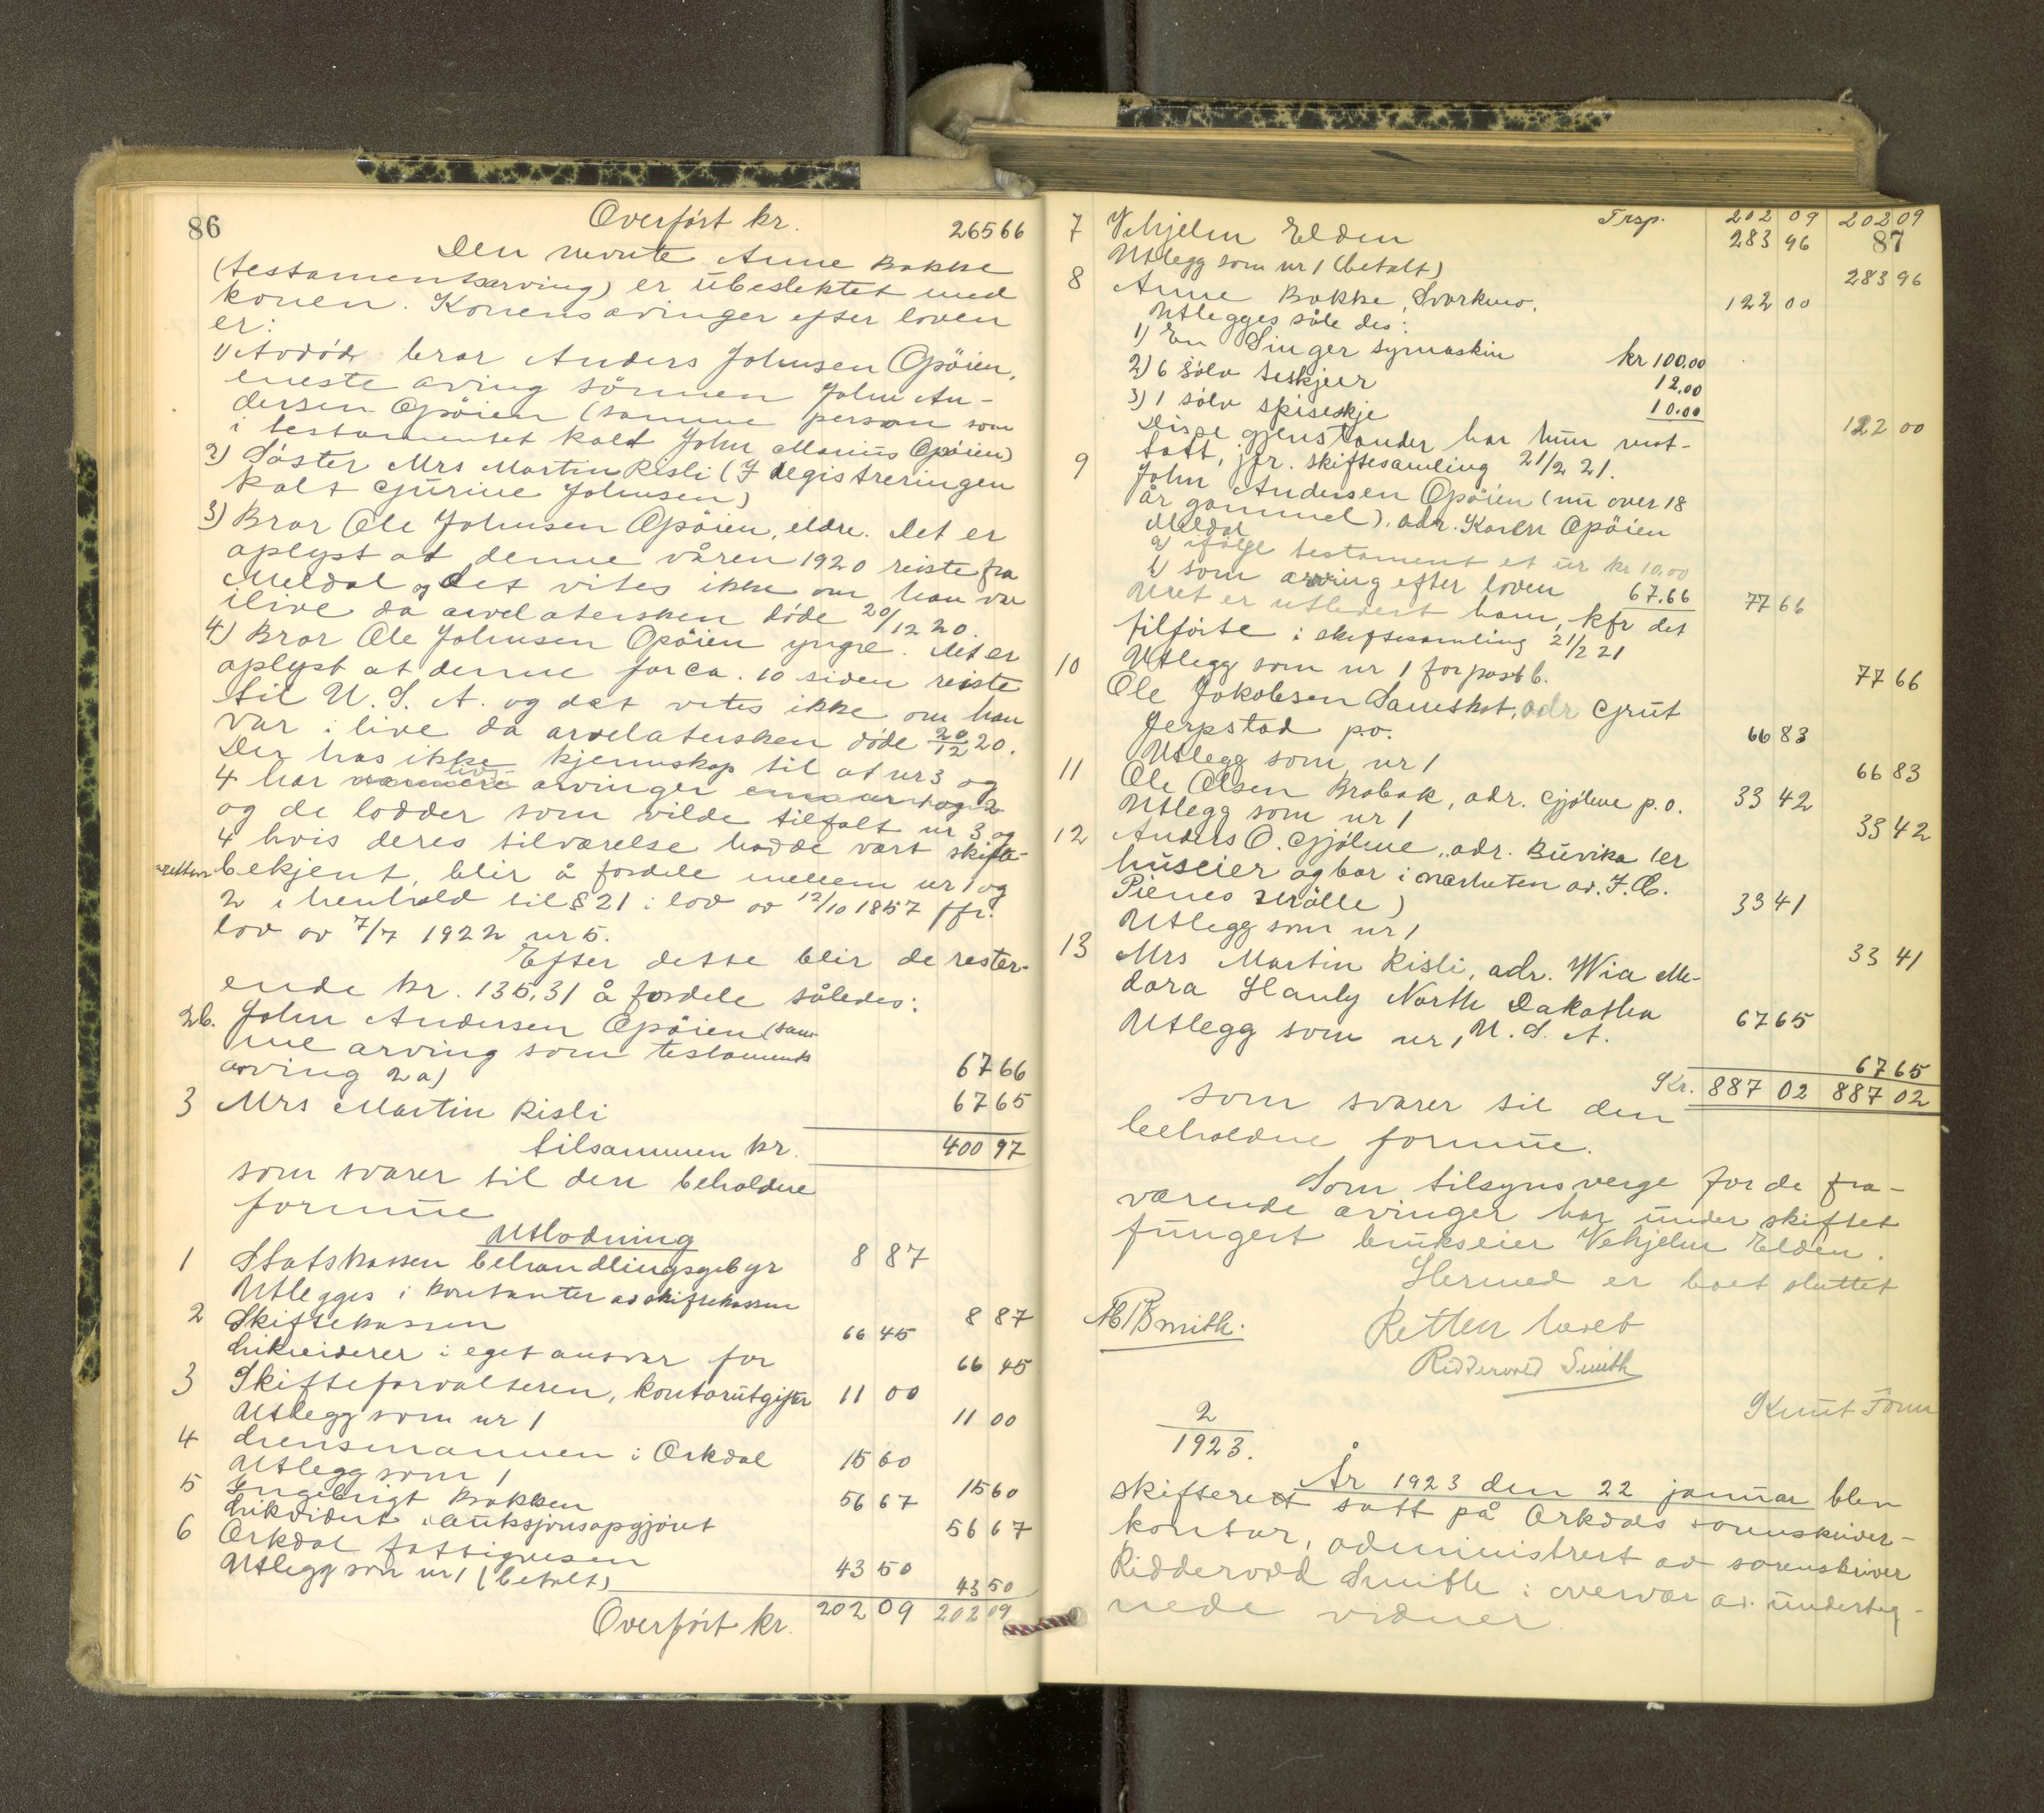 86
Overført kr. 265 66
Den nevnte Anne Bakke
(testamentsarving) er ubeslektet med
konen. Konens arvinger efter loven
er:
1) Avdøde bror Anders Johnsen Opøien,
eneste arving sønnen John An-
dersen Opøien (samme person som
i testamentet kalt John Marius Opøien)
2) Søster Mrs Martin Risli (I registreringen
kalt Gurine Johnsen)
3) Bror Ole Johnsen Opøien, eldre. Det er
oplyst at denne våren 1920 reiste fra
Meldal og det vites ikke om han var
ilive da arvelatersken døde 20/12 20.
4) Bror Ole Johnsen Opøien yngre. Det er
oplyst at denne for ca. 10 siden reiste
til U. S. A. og det vites ikke om han
var i live da arvelatersken døde 20/12 20.
Der has ikke kjennskap til at nr 3 og
4 har livs- arvinger
og de lodder som vilde tilfalt nr 3 og
4 hvis deres tilværelse hadde vært skifte-
retten bekjent, blir å fordele mellem nr 1 og
2 i henhold til § 21 i lov av 12/10 1857 jfr.
lov av 7/7 1922 nr 5.
Efter dette blir de rester-
ende kr. 135,31 å fordele således:
2b. John Andersen Opøien (sam-
me arving som testaments
arving 2a) 67 66
3 Mrs Martin Risli 67 65
tilsammen kr. 400 97
som svarer til den beholdne
formue
Utlodning
1 Statskassen behandlingsgebyr 8 87
Utlegges i kontanter av skiftekassen 8 87
2 Skiftekassen 66 45
Likviderer i eget ansvar for 66 45
3 Skifteforvalteren, kontorutgifter 11 00
Utlegg som nr 1 11 00
4 Lensmannen i Orkdal 15 60
Utlegg som 1 15 60
5 Ingebrigt Bakken 56 67
Likvidert i auksjonsopgjøret 56 67
6 Orkdal fattigvesen 43 50
Utlegg som nr 1 (betalt) 43 50
Overført kr. 202 09 202 09
87
Trsp. 202 09 202 09
7 Vehjelm Elden 283 96
Utlegg som nr 1 (betalt) 283 96
8 Anne Bakke, Svorkmo. 122 00
Utlegges således:
1) En Singer symaskin kr 100.00
2) 6 sølv teskjeer 12.00
3) 1 sølv spiseskje 10.00
122 00
Disse gjenstander har hun mot-
tatt, jfr. skiftesamling 21/2 21.
9 John Andersen Opøien (nu over 18
år gammel), adr. Karen Opøien
Meldal
a) ifølge testament et ur kr 10.00
b) som arving efter loven 67.66 77 66
Uret er utlevert ham, kfr det
tilførte i skiftesamling 21/2 21
Utlegg som nr 1 for post b. 77 66
10 Ole Jakobsen Sameskot, adr Grut
Jerpstad p.o. 66 83
Utlegg som nr 1 66 83
11 Ole Olsen Brabak, adr. Gjølme p.o. 33 42
Utlegg som nr 1 33 42
12 Anders O. Gjølme, adr. Buvika (er
huseier og bor i nærheten av I. C.
Pienes Mølle) 33 41
Utlegg som nr 1 33 41
13 Mrs Martin Risli, adr. Wia Me-
dora Hanly North Dakotha
U. S. A. 67 65
Utlegg som nr 1 67 65
Kr. 887 02 887 02
som svarer til den
beholdne formue.
Som tilsynsverge for de fra-
værende arvinger har under skiftet
fungert brukseier Vehjelm Elden.
Hermed er boet sluttet
Retten hevet
Ridderwold Smith
Knut Tonn
2/1923.
År 1923 den 22 januar blev
skifterett satt på Orkdals sorenskriver-
kontor, administrert av sorenskriver
Ridderwold Smith i overvær av underteg-
nede vidner